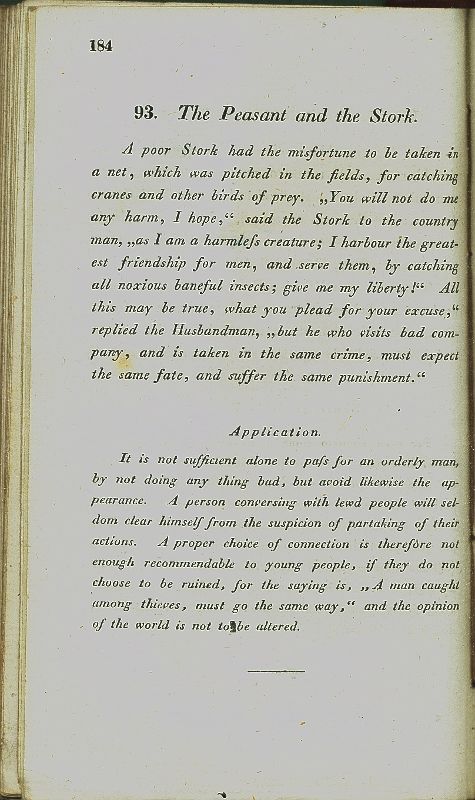 184
93. The Peasant and the Stork.
A poor Stork had the misfortune to be taken in
a net, which was pitched in the fields, for catching
cranes and other birds of prey. „You will not do me
any harm, I hope,“ said the Stork to the country
man, „as I am a harmleſs creature; I harbour the great-
est friendship for men, and serve them, by catching
all noxious baneful insects; give me my liberty!“ All
this may be true, what you plead for your excuse,“
replied the Husbandman, „but he who visits bad com-
pany, and is taken in the same crime, must expect
the same fate, and suffer the same punishment.“
Application.
It is not sufficient alone to paſs for an orderly man,
by not doing any thing bad, but avoid likewise the ap-
pearance. A person conversing with lewd people will sel-
dom clear himself from the suspicion of partaking of their
actions. A proper choice of connection is therefore not
enough recommendable to young people, if they do not
choose to be ruined, for the saying is, „A man caught
among thieves, must go the same way,“ and the opinion
of the world is not to be altered.